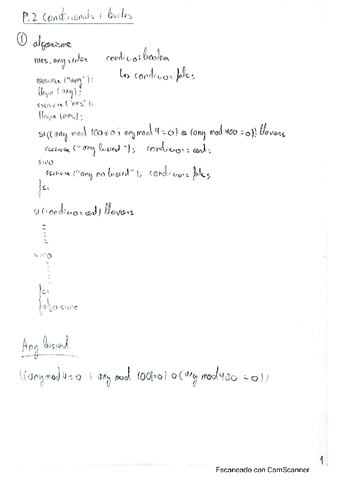 P.2 Condicionals i bucles
① algorisme
mes, any: enter condicio: boolea
↳ condicio = fals;
escriure ("any");
llegir (any);
escriure ("mes");
llegir (mes);
si((any mod 100≠0 i any mod 4=0) o (any mod 400=0)) llavors
escriure ("any bisiest"); condicio = cert;
sino
escriure ("any no bisiest"); condicio = fals;
fsi
si (condicio=cert) llavors
sino
fsi
falgorisme
Any Bisiest
((any mod 4=0 i any mod 100!=0) o (any mod 400=0))
1
Escaneado con CamScanner